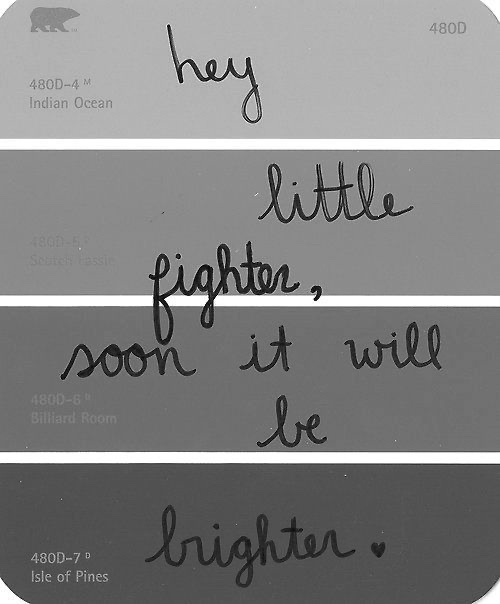 480D
hey
480D-4 M
Indian Ocean
little
480D-5 P
Scotch Lassie
fighter,
soon it will
480D-6 D
Billiard Room
be
brighter. ♥
480D-7 D
Isle of Pines